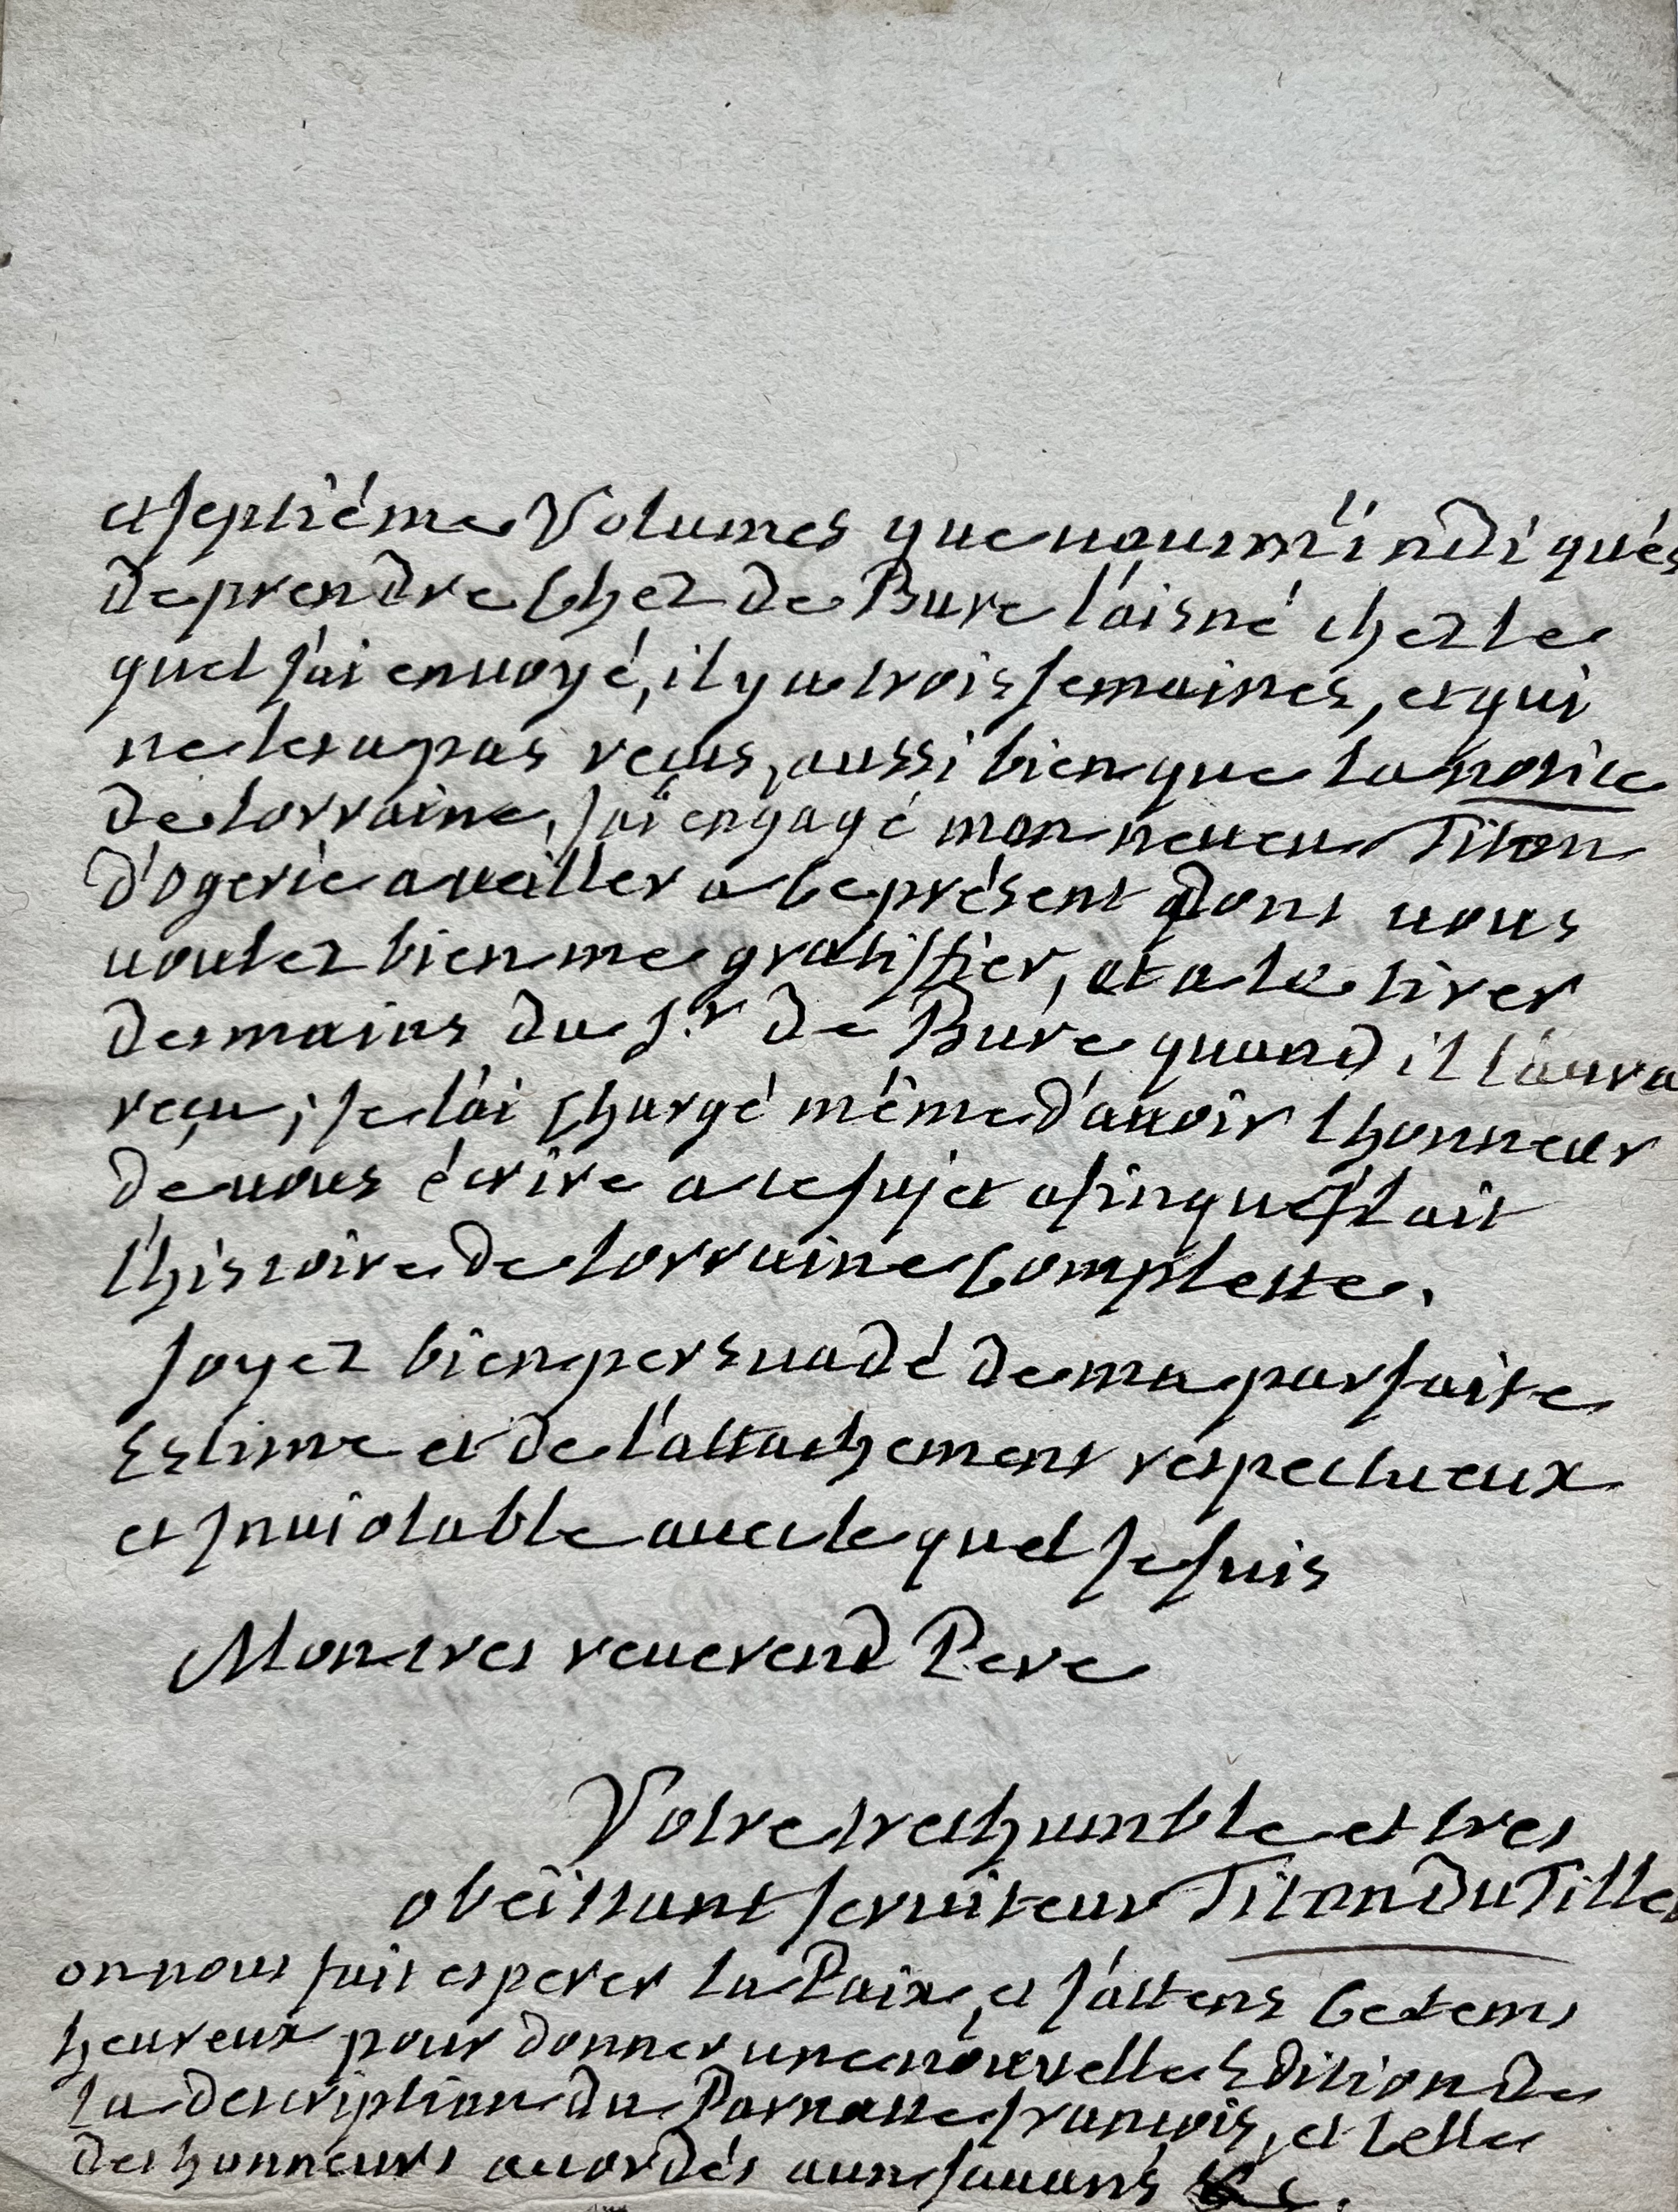 et septiéme Volumes que vous m'indiqués
de prendre Chez de Bure l'aisné chez le
quel j'ai envoyé, il y a trois semaines, et qui
ne les a pas reçus, aussi bien que la notice
de Lorraine, j'ai engagé mon neveu Titon
d'Ogerie a veiller a Ce présent dont vous
voulez bien me gratiffier, et a le tirer
des mains du Sr. de Bure quand il l'aura
reçu; je l'ai Chargé même d'avoir l'honneur
de vous écrire a ce sujet afin qu'il ait
l'histoire de Lorraine Complette.
soyez bien persuadé de ma parfaite
Estime et de l'attachement respectueux
et Inviolable avec le quel je suis
Mon tres reverend Pere
Votre tres humble et tres
obeissant serviteur Titon Du Tillet
on nous fait esperer la Paix, et j'attens Ce tems
heureux pour donner une nouvelle Edition de
la description du Parnasse françois, et Celle
des honneurs accordés aux savans